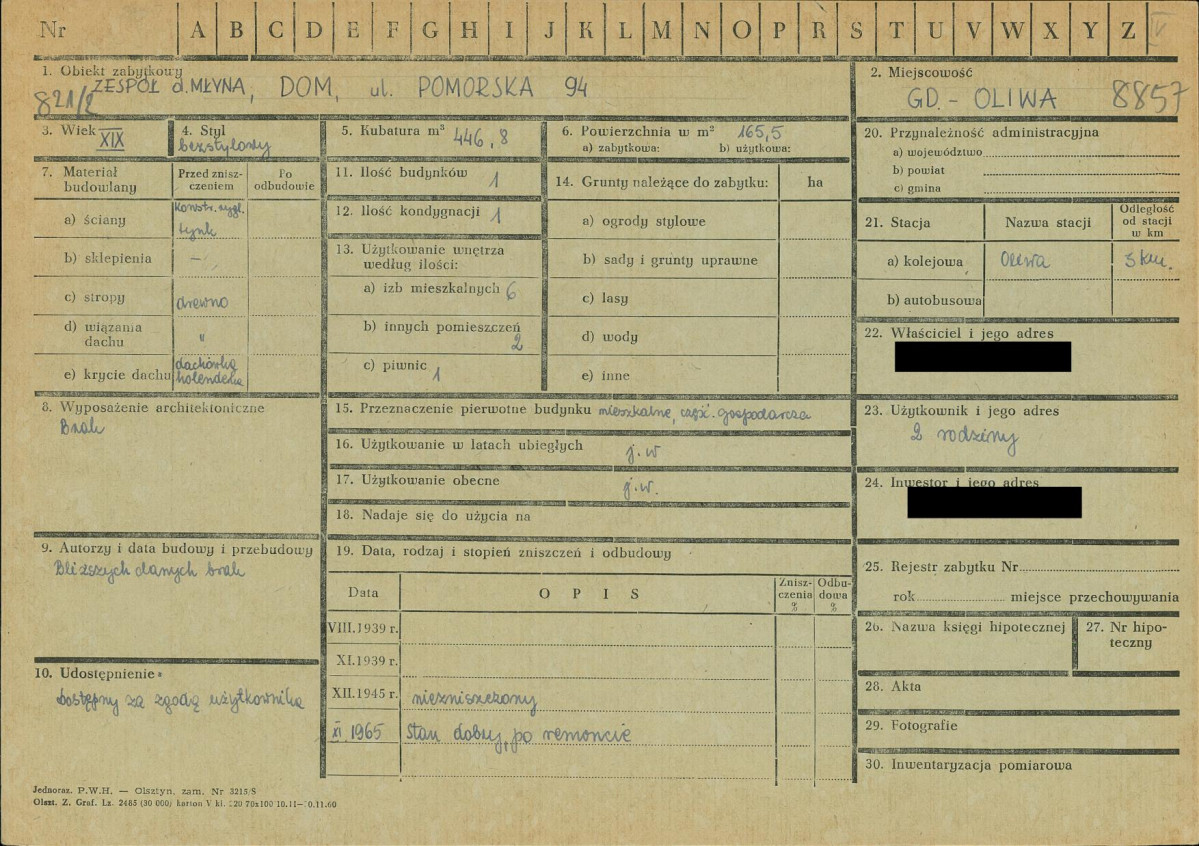 Nr A B C D E F G H I J K L M N O P R S T U V W X Y Z IV
1. Obiekt zabytkowy
ZESPÓŁ d. MŁYNA, DOM, ul. POMORSKA 94
821/2
2. Miejscowość
GD. - OLIWA 8857
3. Wiek XIX
4. Styl
bezstylowy
5. Kubatura m³ 446,8
6. Powierzchnia w m² 165,5
a) zabytkowa: b) użytkowa:
7. Materiał budowlany
Przed znisz-
czeniem
Po
odbudowie
a) ściany
konstr. rygl.
tynk
b) sklepienia –
c) stropy drewno
d) wiązania
dachu "
e) krycie dachu
dachówka
holenderka
8. Wyposażenie architektoniczne
Brak
9. Autorzy i data budowy i przebudowy
Bliższych danych brak
10. Udostępnienie
Dostępny za zgodą użytkownika
11. Ilość budynków 1
12. Ilość kondygnacji 1
13. Użytkowanie wnętrza
według ilości:
a) izb mieszkalnych 6
b) innych pomieszczeń
2
c) piwnic 1
14. Grunty należące do zabytku: ha
a) ogrody stylowe
b) sady i grunty uprawne
c) lasy
d) wody
e) inne
15. Przeznaczenie pierwotne budynku mieszkalne, część. gospodarcza
16. Użytkowanie w latach ubiegłych j.w
17. Użytkowanie obecne j.w.
18. Nadaje się do użycia na
19. Data, rodzaj i stopień zniszczeń i odbudowy
Data OPIS
Znisz-
czenia
%
Odbu-
dowa
%
VIII.1939 r.
XI.1939 r.
XII.1945 r. niezniszczony
XI 1965 Stan dobry, po remoncie
20. Przynależność administracyjna
a) województwo
b) powiat
c) gmina
21. Stacja Nazwa stacji
Odległość
od stacji
w km
a) kolejowa Oliwa 3 km.
b) autobusowa
22. Właściciel i jego adres
23. Użytkownik i jego adres
2 rodziny
24. Inwestor i jego adres
25. Rejestr zabytku Nr
rok miejsce przechowywania
26. Nazwa księgi hipotecznej
27. Nr hipo-
teczny
28. Akta
29. Fotografie
30. Inwentaryzacja pomiarowa
Jednoraz. P.W.H. — Olsztyn. zam. Nr 3215/S
Olszt. Z. Graf. Lz. 2485 (30 000) karton V kl. 220 70x100 10.11—30.11.60